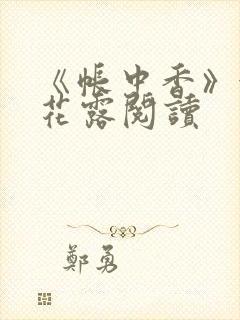 《帳中香》
花露閱讀
鄭勇